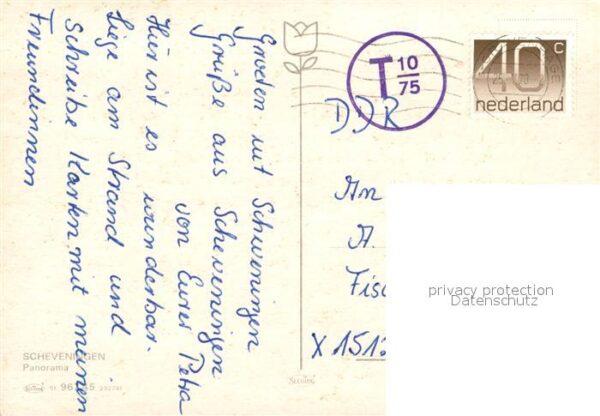 Groeden uit Schweningen
Grüße aus Scheveningen
von Eurer Petra
Hier ist es wunderbar.
Liege am Strand und
schreibe Karten mit meinen
Freundinnen
T 10/75
40 c
nederland
DDR
An
A.
Fisc
X 151
privacy protection
Datenschutz
SCHEVENINGEN
Panorama